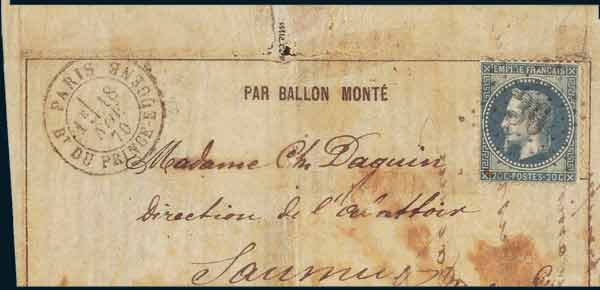 PARIS
Bt DU PRINCE-EUGENE
18
70
PAR BALLON MONTÉ
EMPIRE FRANÇAIS
20C POSTES 20C
Madame Ch. Daquin
Direction de l'
Saumur